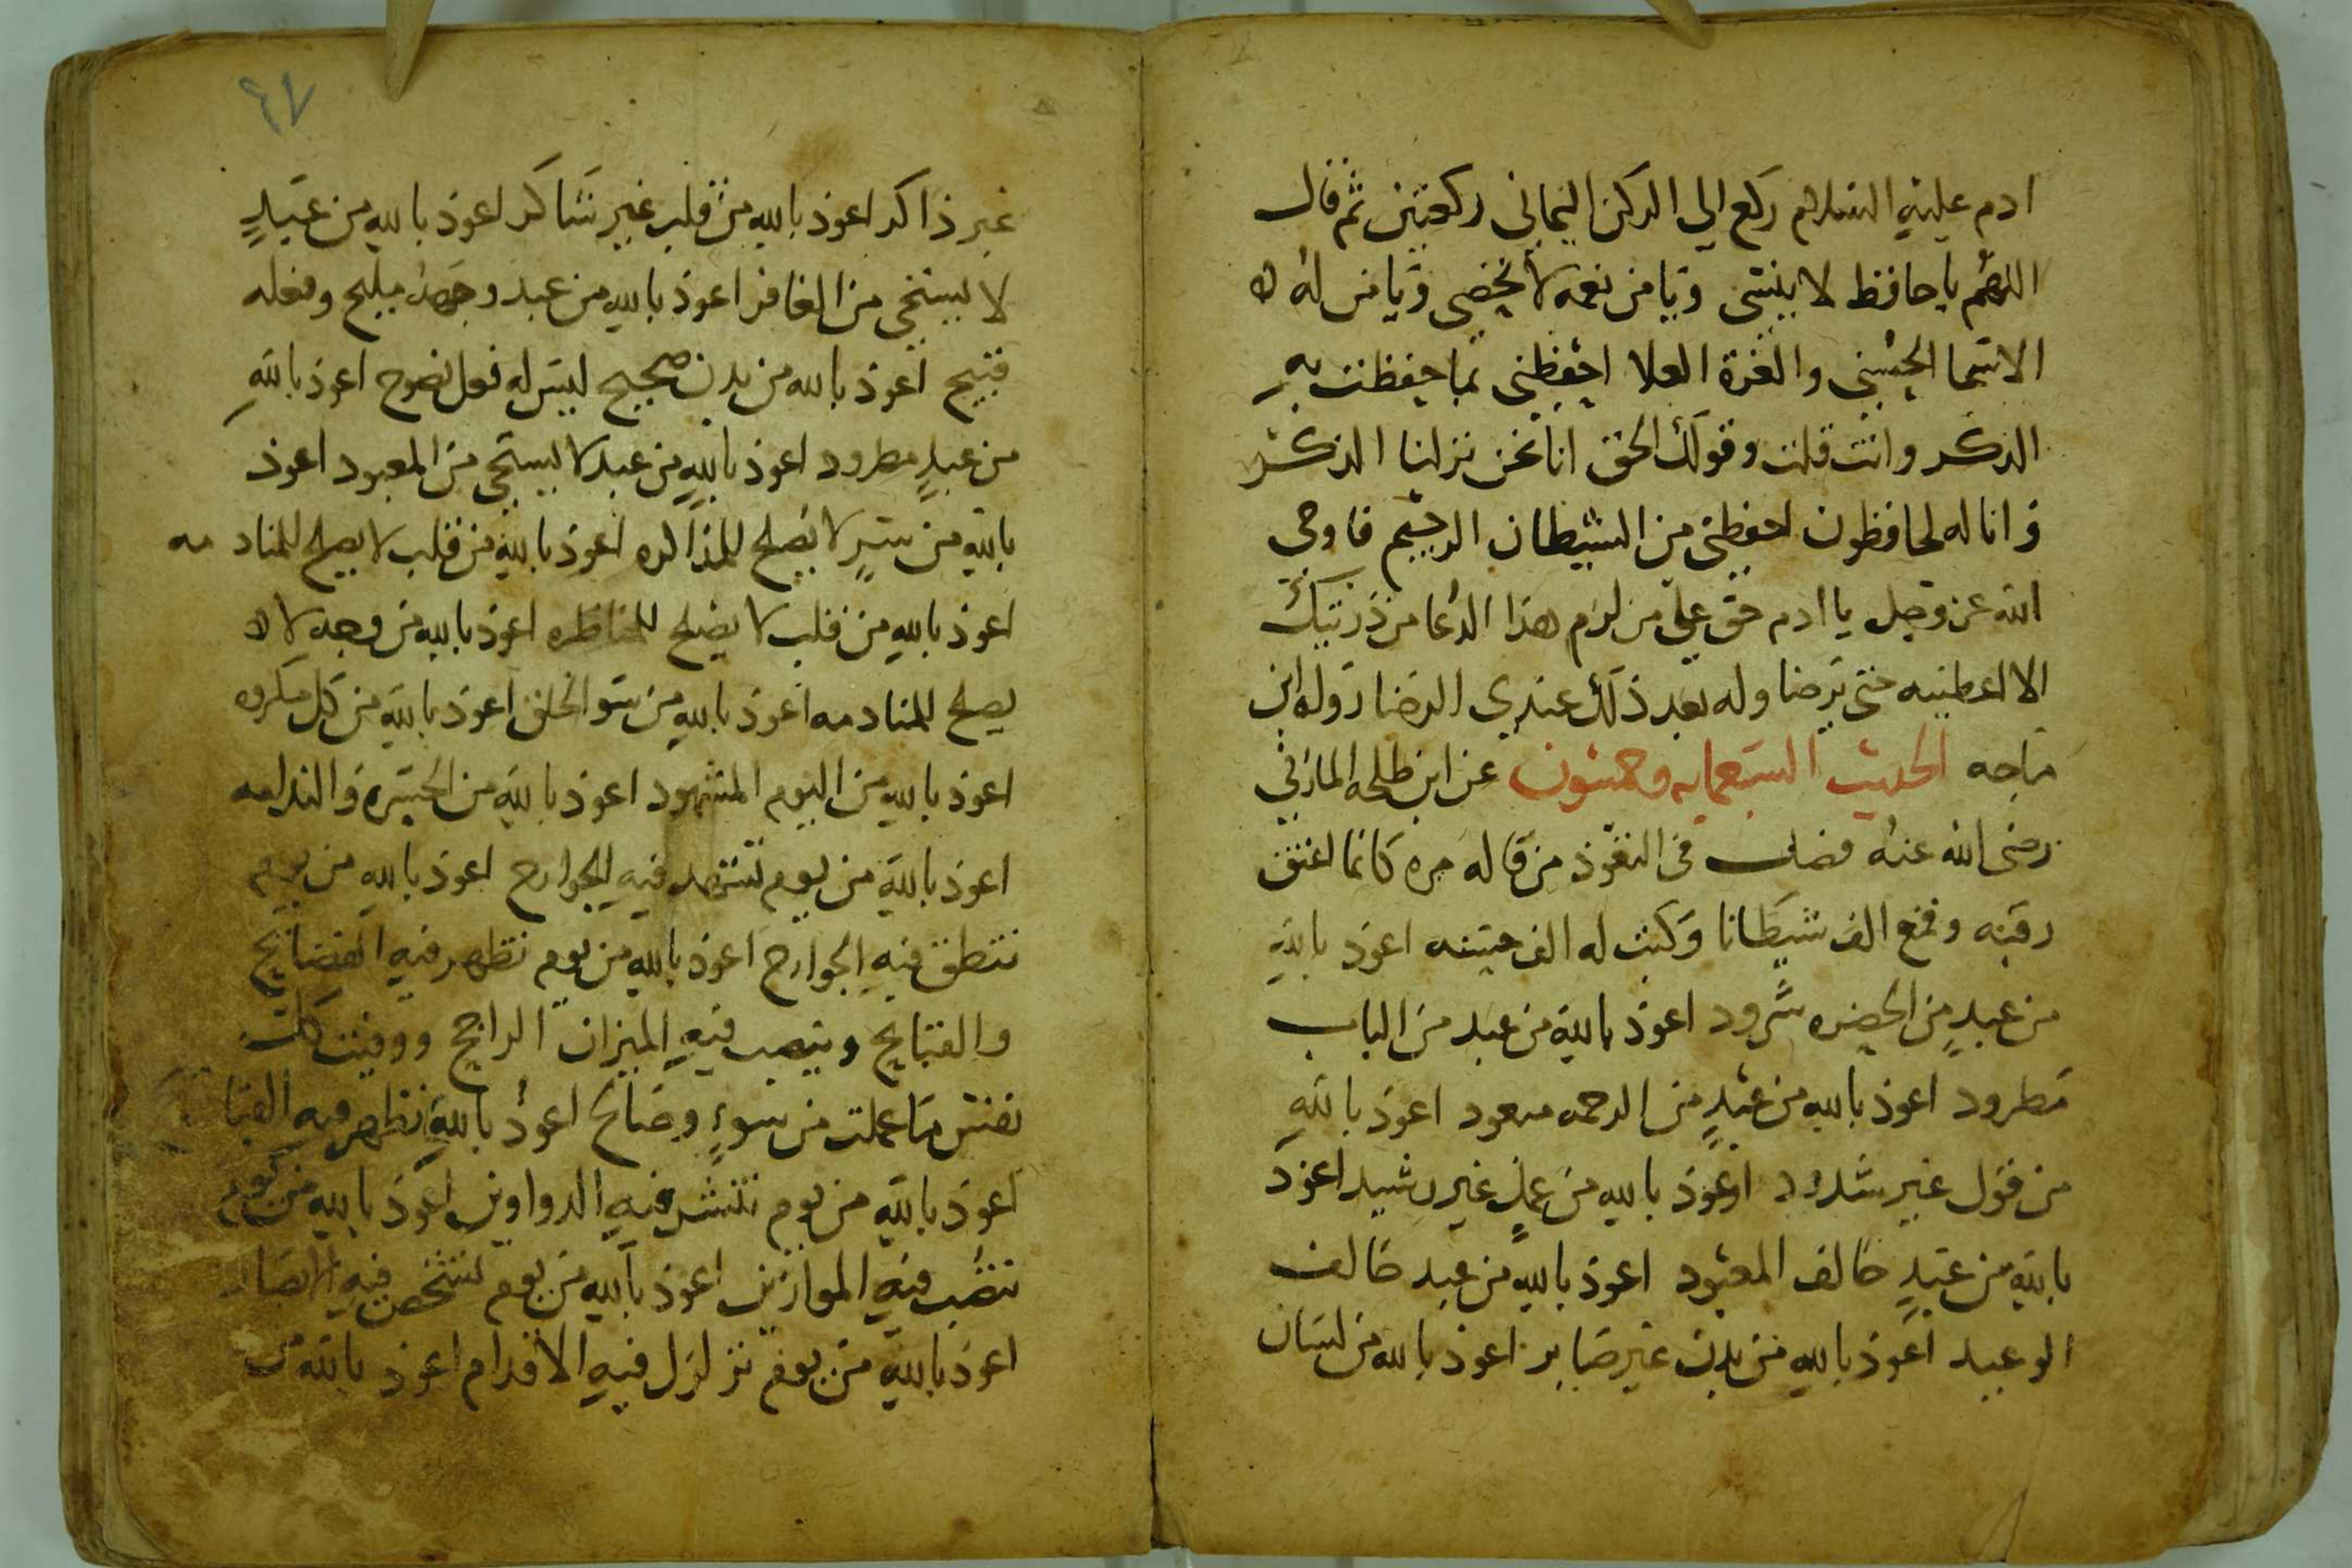 ادم عليه السلام ركع الي الركن اليماني ركعتين ثم قال
اللهم يا حافظ لا ينسى ويا من نعمه لا تحصى ويا من له لا
الاسما الحسنى والعزة العلا احفظني بما حفظت به
الذكر وانت قلت وقولك الحق انا نحن نزلنا الذكر
وانا له لحافظون احفظني من الشيطان الرجيم فاوحى
الله عز وجل يا ادم حق علي من لزم هذا الدعا من ذريتك
الا اعطيته حتى يرضا وله بعد ذلك عندي الرضا رواه ابن
ماجه الحديث السبعمايه وخمسون عن ابن طلحه المازني
رضى الله عنه فضل في التعوذ من قاله مره كانما اعتق
رقبه وقمع الف شيطانا وكتب له الف حسنه اعوذ بالله
من عبد من الحضره شرود اعوذ بالله من عبد من الباب
مطرود اعوذ بالله من عبد من الرحمه مبعود اعوذ بالله
من قول غير شدود اعوذ بالله من عمل غير رشيد اعوذ
بالله من عبد خالف المعبود اعوذ بالله من عبد خالف
الوعيد اعوذ بالله من بدن غير صابر اعوذ بالله من لسان
٦٧
غير ذاكر اعوذ بالله من قلب غير شاكر اعوذ بالله من عبد
لا يستحي من الغافر اعوذ بالله من عبد وجهه مليح وفعله
قبيح اعوذ بالله من بدن صحيح ليس له فعل نصوح اعوذ بالله
من عبد مطرود اعوذ بالله من عبد لا يستحي من المعبود اعوذ
بالله من سر لا يصلح للمذاكره اعوذ بالله من قلب لا يصلح للمنادمه
اعوذ بالله من قلب لا يصلح للمناظره اعوذ بالله من وجه لا لا
يصلح للمنادمه اعوذ بالله من سو الخلق اعوذ بالله من كل مكروه
اعوذ بالله من اليوم المشهود اعوذ بالله من الحسره والندامه
اعوذ بالله من يوم تشهد فيه الجوارح اعوذ بالله من يوم
تنطق فيه الجوارح اعوذ بالله من يوم تظهر فيه الفضايح
والقبايح وينصب فيه الميزان الراجح ووفيت كل
نفس ما عملت من سوء وصالح اعوذ بالله تظهر فيه القبا
اعوذ بالله من يوم تنشر فيه الدواوين اعوذ بالله من يوم
تنصب فيه الموازين اعوذ بالله من يوم تشخص فيه الابصار
اعوذ بالله من يوم تزلزل فيه الاقدام اعوذ بالله من